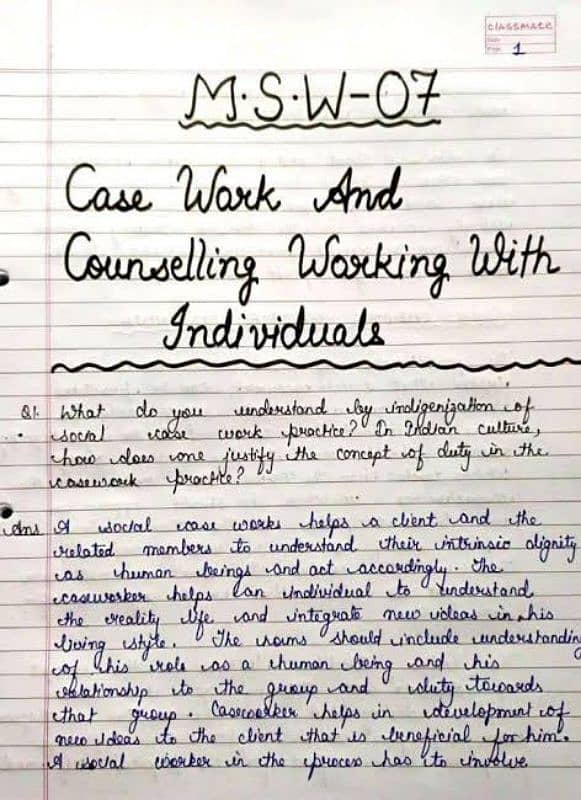 classmate
Date
Page 1
M.S.W-07
Case Work And
Counselling Working With
Individuals
Q1. What do you understand by indigenization of
social case work practice? In Indian culture,
how does one justify the concept of duty in the
casework practice?
Ans A social case works helps a client and the
related members to understand their intrinsic dignity
as human beings and act accordingly. The
caseworker helps an individual to understand
the reality life and integrate new ideas in his
living style. The norms should include understanding
of his role as a human being and his
relationship to the group and duty towards
that group. Caseworker helps in development of
new ideas to the client that is beneficial for him.
A social worker in the process has to involve